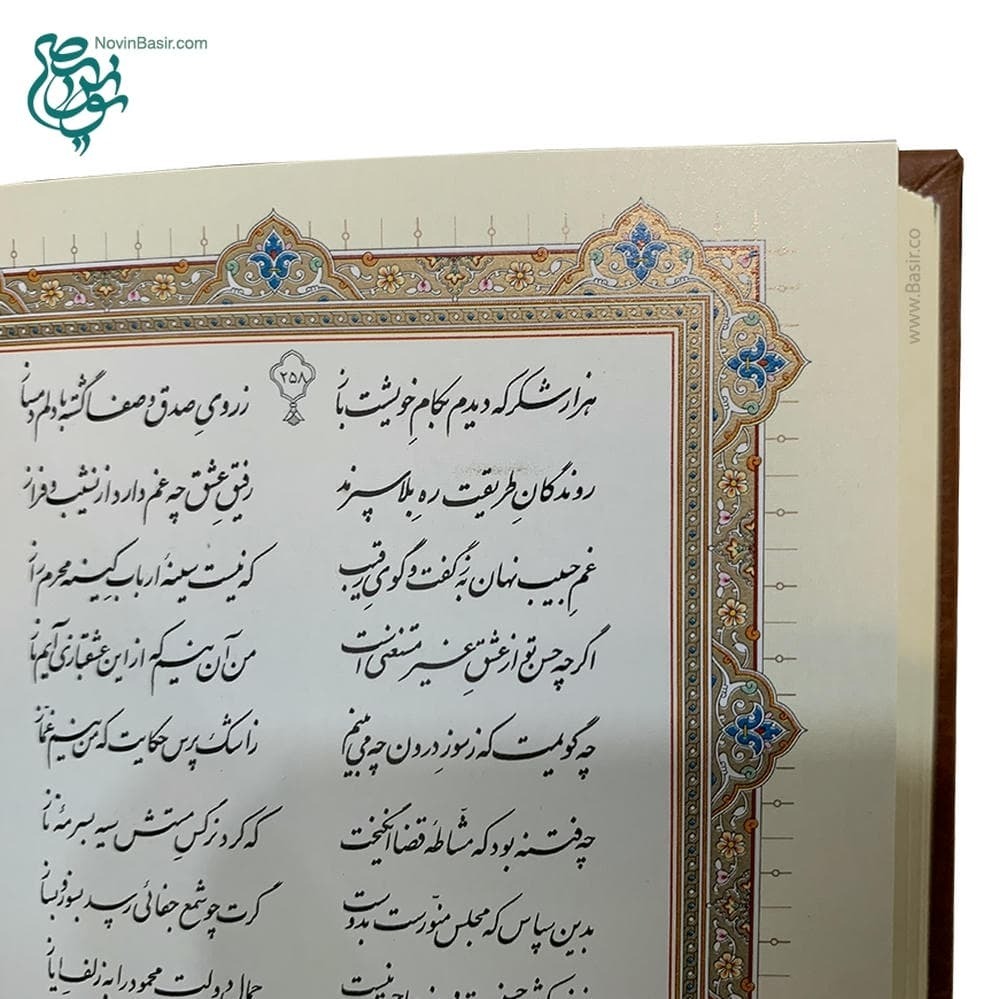 NovinBasir.com
www.Basir.co
۲۵۸
هزار شکر که دیدم بکام خویشت باز    ز رویِ صدق و صفا گشته با دلم دمساز
روندگانِ طریقیت رهِ بلا سپرند    رفیقِ عشق چه غم دارد از نشیب و فراز
غمِ حبیب نهان به ز گفت و گویِ رقیب    که نیست سینهٔ اربابِ کینه محرمِ راز
اگر چه حسنِ تو از عشقِ غیر مستغنی است    من آن نیم که از این عشقبازی آیم باز
چه گویمت که ز سوزِ درون چه می بینم    ز اشک پرس حکایت که من نیم غمّاز
چه فتنه بود که مشّاطهٔ قضا انگیخت    که کرد نرگسِ مستش سیه بسرمهٔ ناز
بدین سپاس که مجلس منوّرست بدوست    گرت چو شمع جفائی رسد بسوز و بساز
جمالِ دولتِ محمود را به زلفِ ایاز